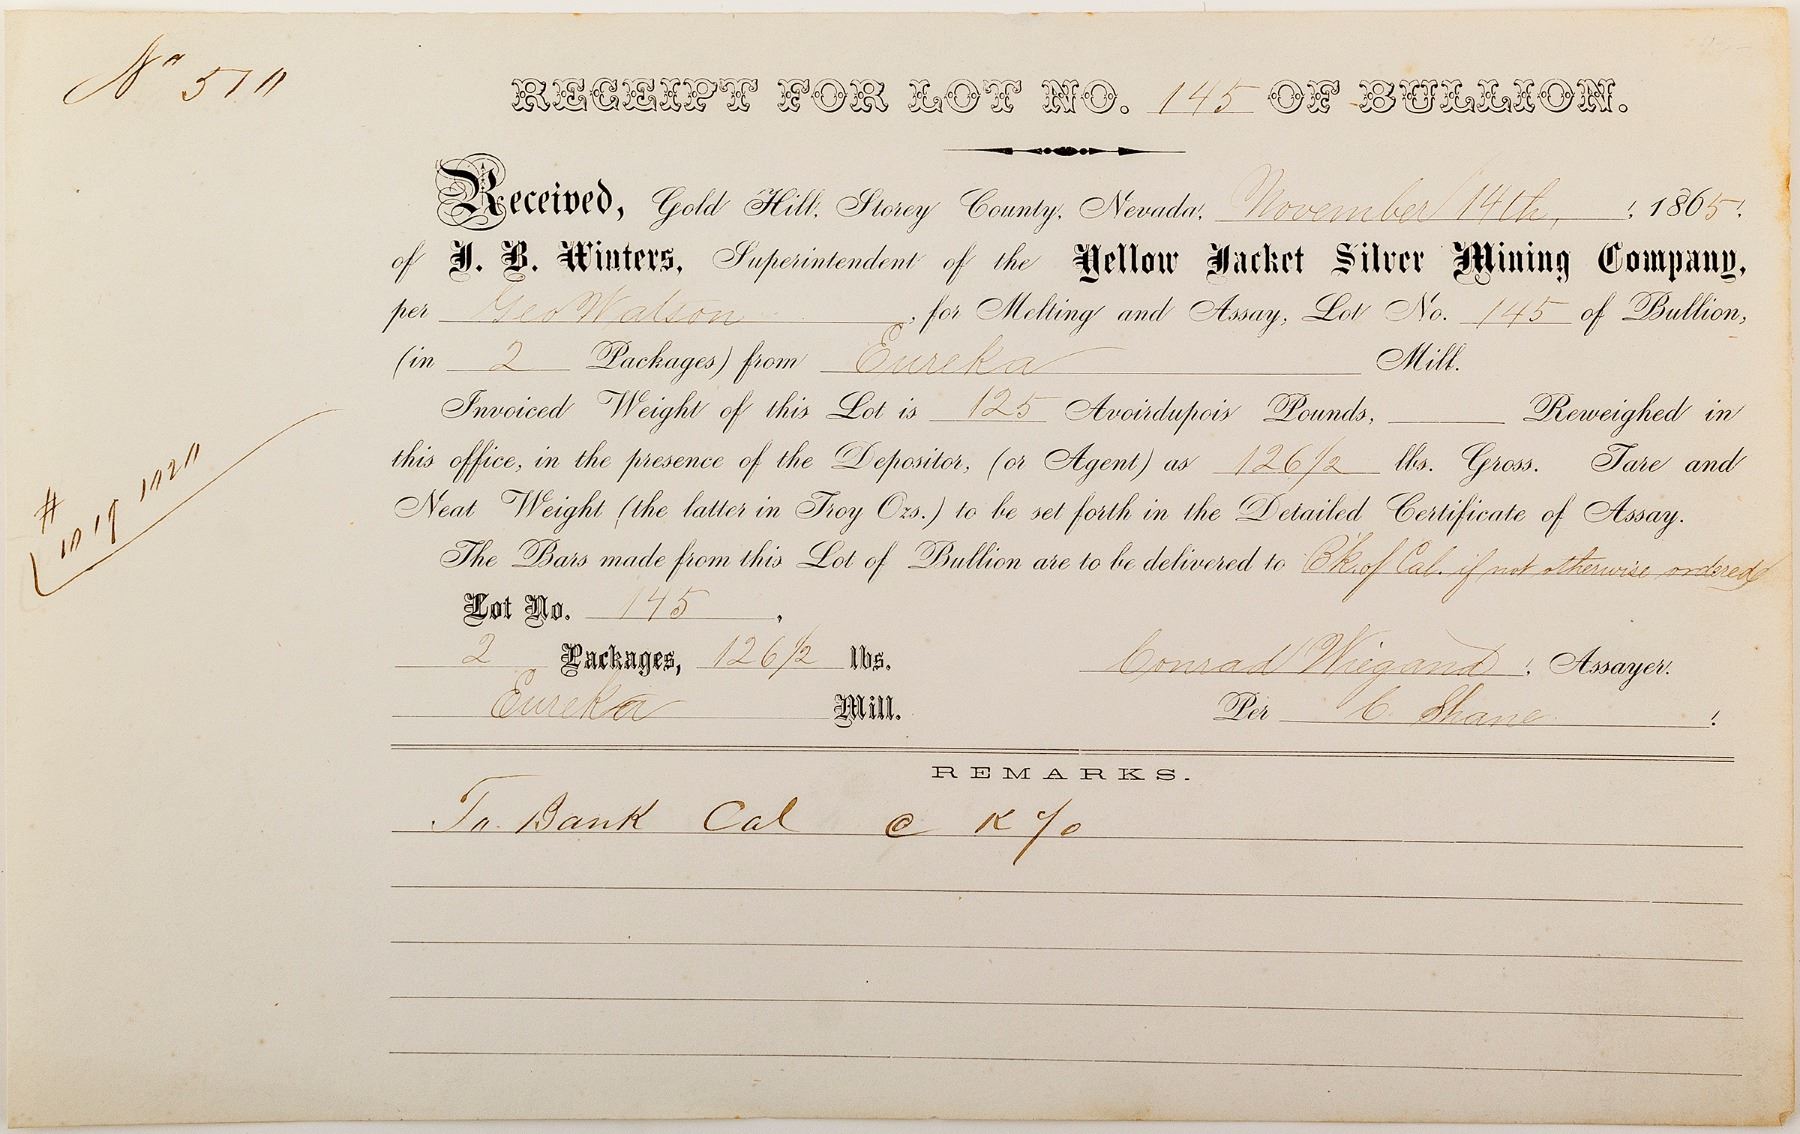 No 510
RECEIPT FOR LOT NO. 145 OF BULLION.
Received, Gold Hill, Storey County, Nevada, November 14th, 1865.
of J. B. Winters, Superintendent of the Yellow Jacket Silver Mining Company,
per Geo Watson, for Melting and Assay, Lot No. 145 of Bullion,
(in 2 Packages) from Eureka Mill.
Invoiced Weight of this Lot is 125 Avoirdupois Pounds, Reweighed in
this office, in the presence of the Depositor, (or Agent) as 126 1/2 lbs. Gross. Tare and
Neat Weight (the latter in Troy Ozs.) to be set forth in the Detailed Certificate of Assay.
The Bars made from this Lot of Bullion are to be delivered to Bk. of Cal. if not otherwise ordered
Lot No. 145,
2 Packages, 126 1/2 lbs.
Conrad Wiegand, Assayer.
Eureka Mill.
Per C. Shane.
REMARKS.
To Bank Cal